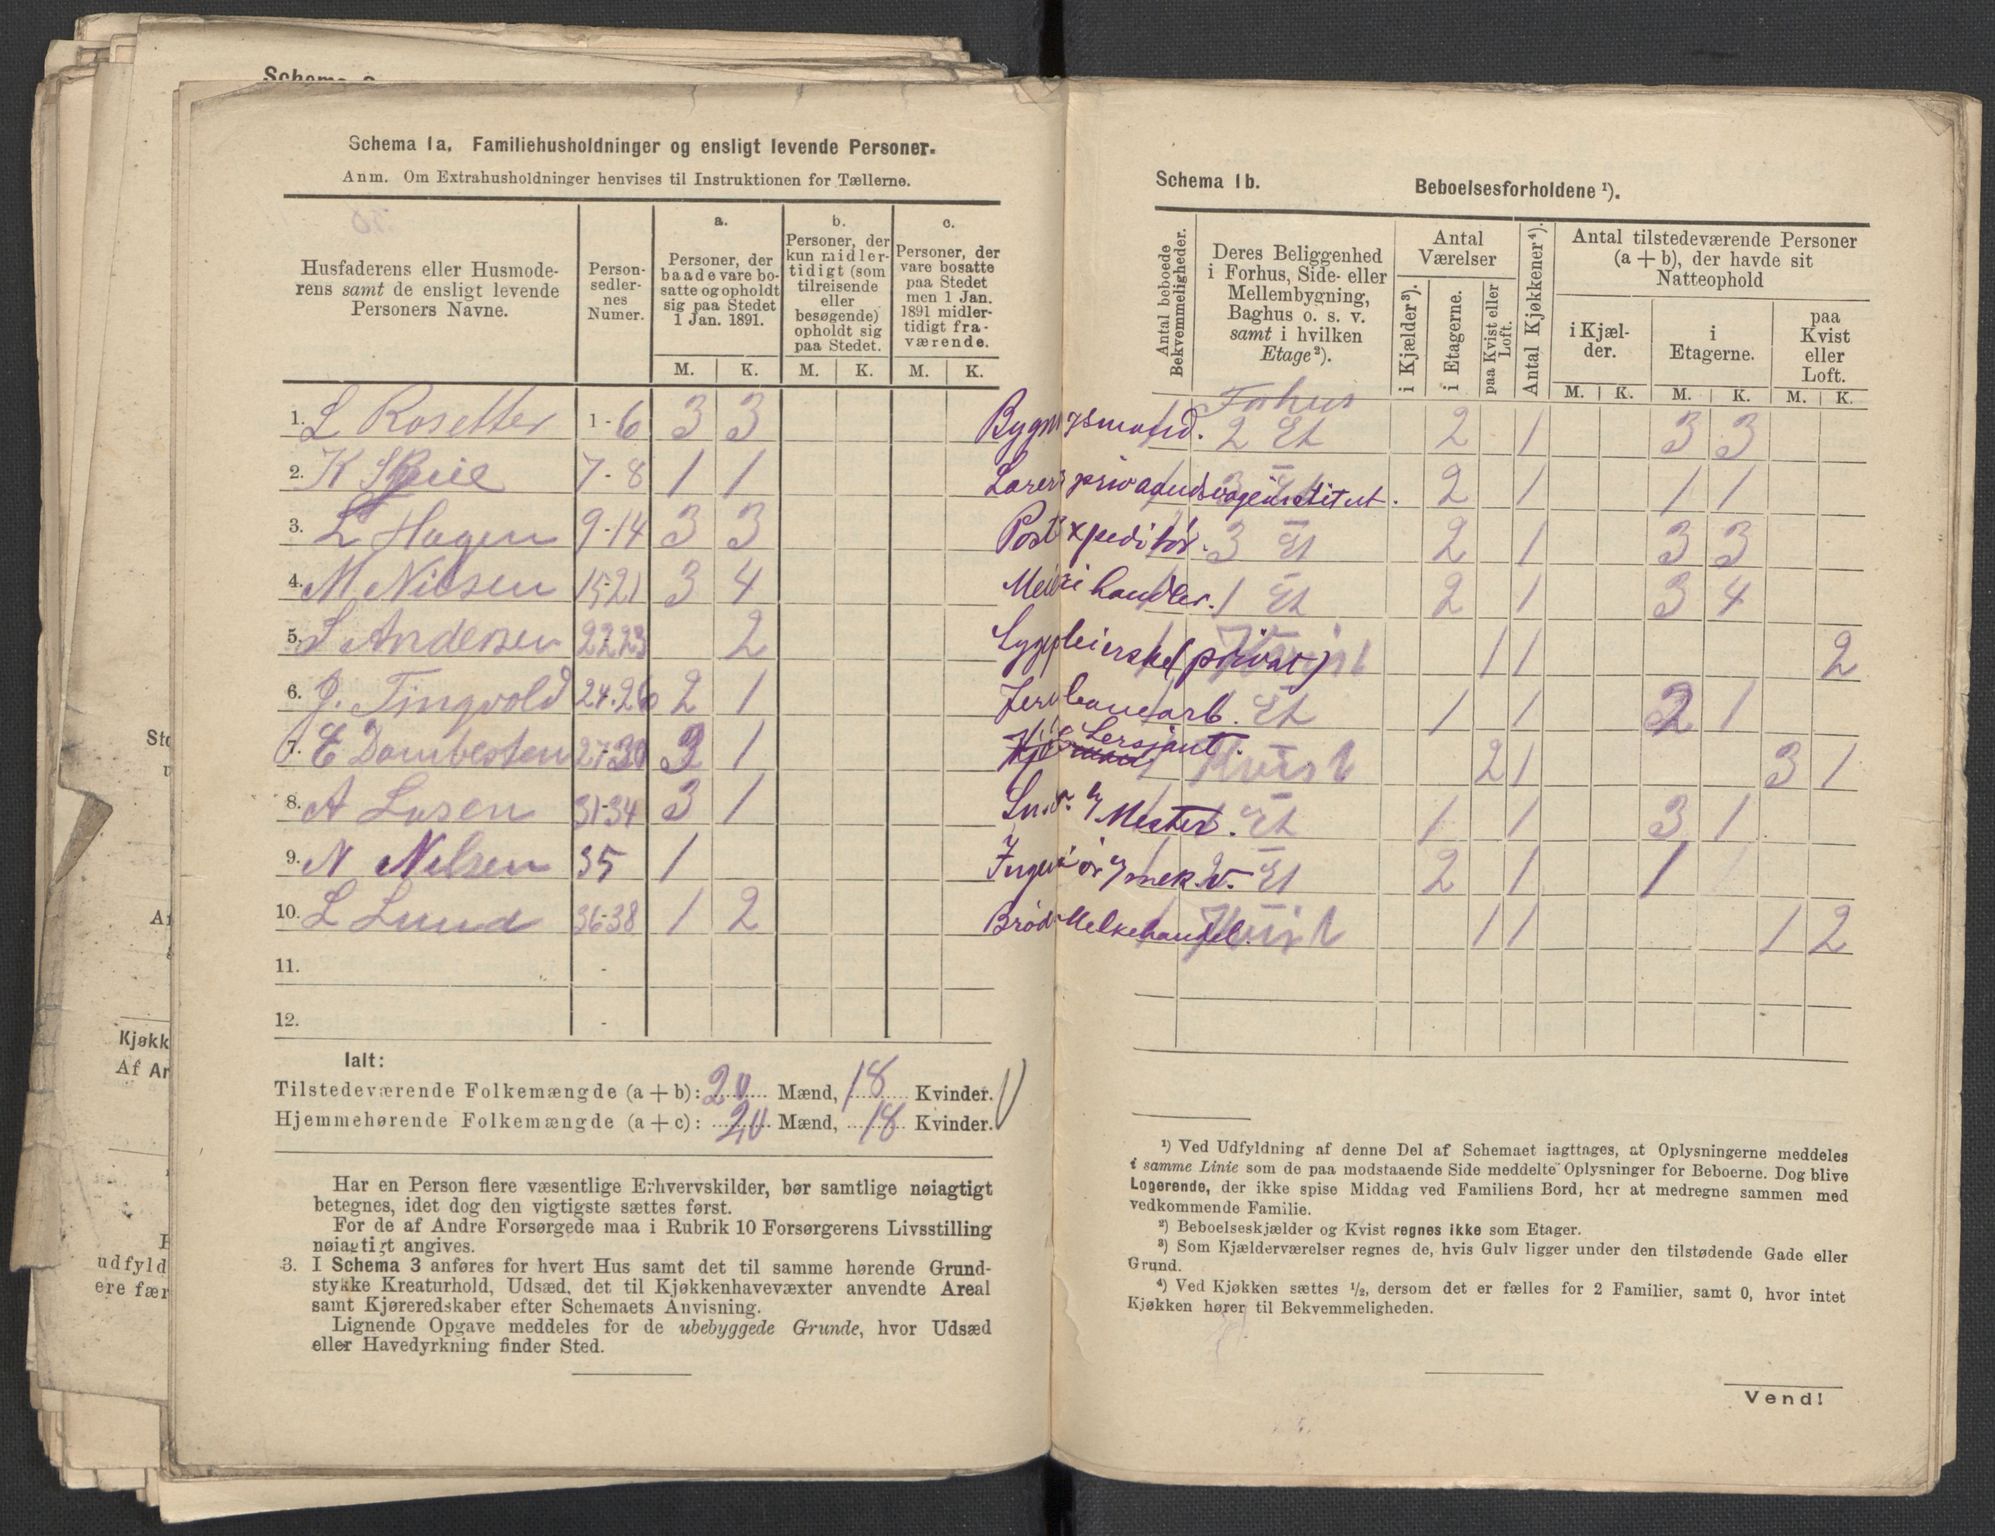 Schema 1a. Familiehusholdninger og ensligt levende Personer.
Anm. Om Extrahusholdninger henvises til Instruktionen for Tællerne.
Husfaderens eller Husmoderens samt de ensligt levende Personers Navne.
Person-sedler-nes Numer.
a.
Personer, der baade vare bosatte og opholdt sig paa Stedet 1 Jan. 1891.
b.
Personer, der kun midlertidigt (som tilreisende eller besøgende) opholdt sig paa Stedet.
c.
Personer, der vare bosatte paa Stedet men 1 Jan. 1891 midlertidigt fraværende.
M. K. M. K. M. K.
1. L Rosetter 1-6 3 3
2. K Skeie 7-8 1 1
3. L Hagen 9-14 3 3
4. M Nilsen 15-21 3 4
5. S Andersen 22-23 2
6. J. Tingvold 24-26 2 1
7. E Dambesten 27-30 3 1
8. A Larsen 31-34 3 1
9. N Nilsen 35 1
10. L Lund 36-38 1 2
11. -
12. -
Ialt:
Tilstedeværende Folkemængde (a + b): 20 Mænd, 18 Kvinder.
Hjemmehørende Folkemængde (a + c): 20 Mænd, 18 Kvinder.
Har en Person flere væsentlige Erhvervskilder, bør samtlige nøiagtigt
betegnes, idet dog den vigtigste sættes først.
For de af Andre Forsørgede maa i Rubrik 10 Forsørgerens Livsstilling
nøiagtigt angives.
3. I Schema 3 anføres for hvert Hus samt det til samme hørende Grund-
stykke Kreaturhold, Udsæd, det til Kjøkkenhavevæxter anvendte Areal
samt Kjøreredskaber efter Schemaets Anvisning.
Lignende Opgave meddeles for de ubebyggede Grunde, hvor Udsæd
eller Havedyrkning finder Sted.
Schema 1b. Beboelsesforholdene ¹).
Antal beboede Bekvemmeligheder.
Deres Beliggenhed i Forhus, Side- eller Mellembygning, Baghus o. s. v. samt i hvilken Etage²).
Antal Værelser
i Kjælder³).
i Etagerne.
paa Kvist eller Loft.
Antal Kjøkkener⁴).
Antal tilstedeværende Personer (a + b), der havde sit Natteophold
i Kjælder.
i Etagerne.
paa Kvist eller Loft.
M. K. M. K. M. K.
Forhus
Bygn 1 2 Et 2 1 3 3
1 3 Et 2 1 1 1
Postexpeditør. 3 Et 2 1 3 3
Meieri handler. 1 1 Et 2 1 3 4
Sygepleierske (privat) 1 Kvist 1 1 2
Jernbanearb. 1 Et 1 1 2 1
Sersjant. 1 Kvist 2 1 3 1
Mester. 1 Et 1 1 3 1
Ingeniør v/ mek. V. 1 2 Et 2 1 1
Brød & Melkehandel. 1 Kvist 1 1 1 2
¹) Ved Udfyldning af denne Del af Schemaet iagttages, at Oplysningerne meddeles
i samme Linie som de paa modstaaende Side meddelte Oplysninger for Beboerne. Dog blive
Logerende, der ikke spise Middag ved Familiens Bord, her at medregne sammen med
vedkommende Familie.
²) Beboelseskjælder og Kvist regnes ikke som Etager.
³) Som Kjælderværelser regnes de, hvis Gulv ligger under den tilstødende Gade eller
Grund.
⁴) Ved Kjøkken sættes ½, dersom det er fælles for 2 Familier, samt 0, hvor intet
Kjøkken hører til Bekvemmeligheden.
Vend!
Kjøkk
Af Ar
udfyld
ere fær